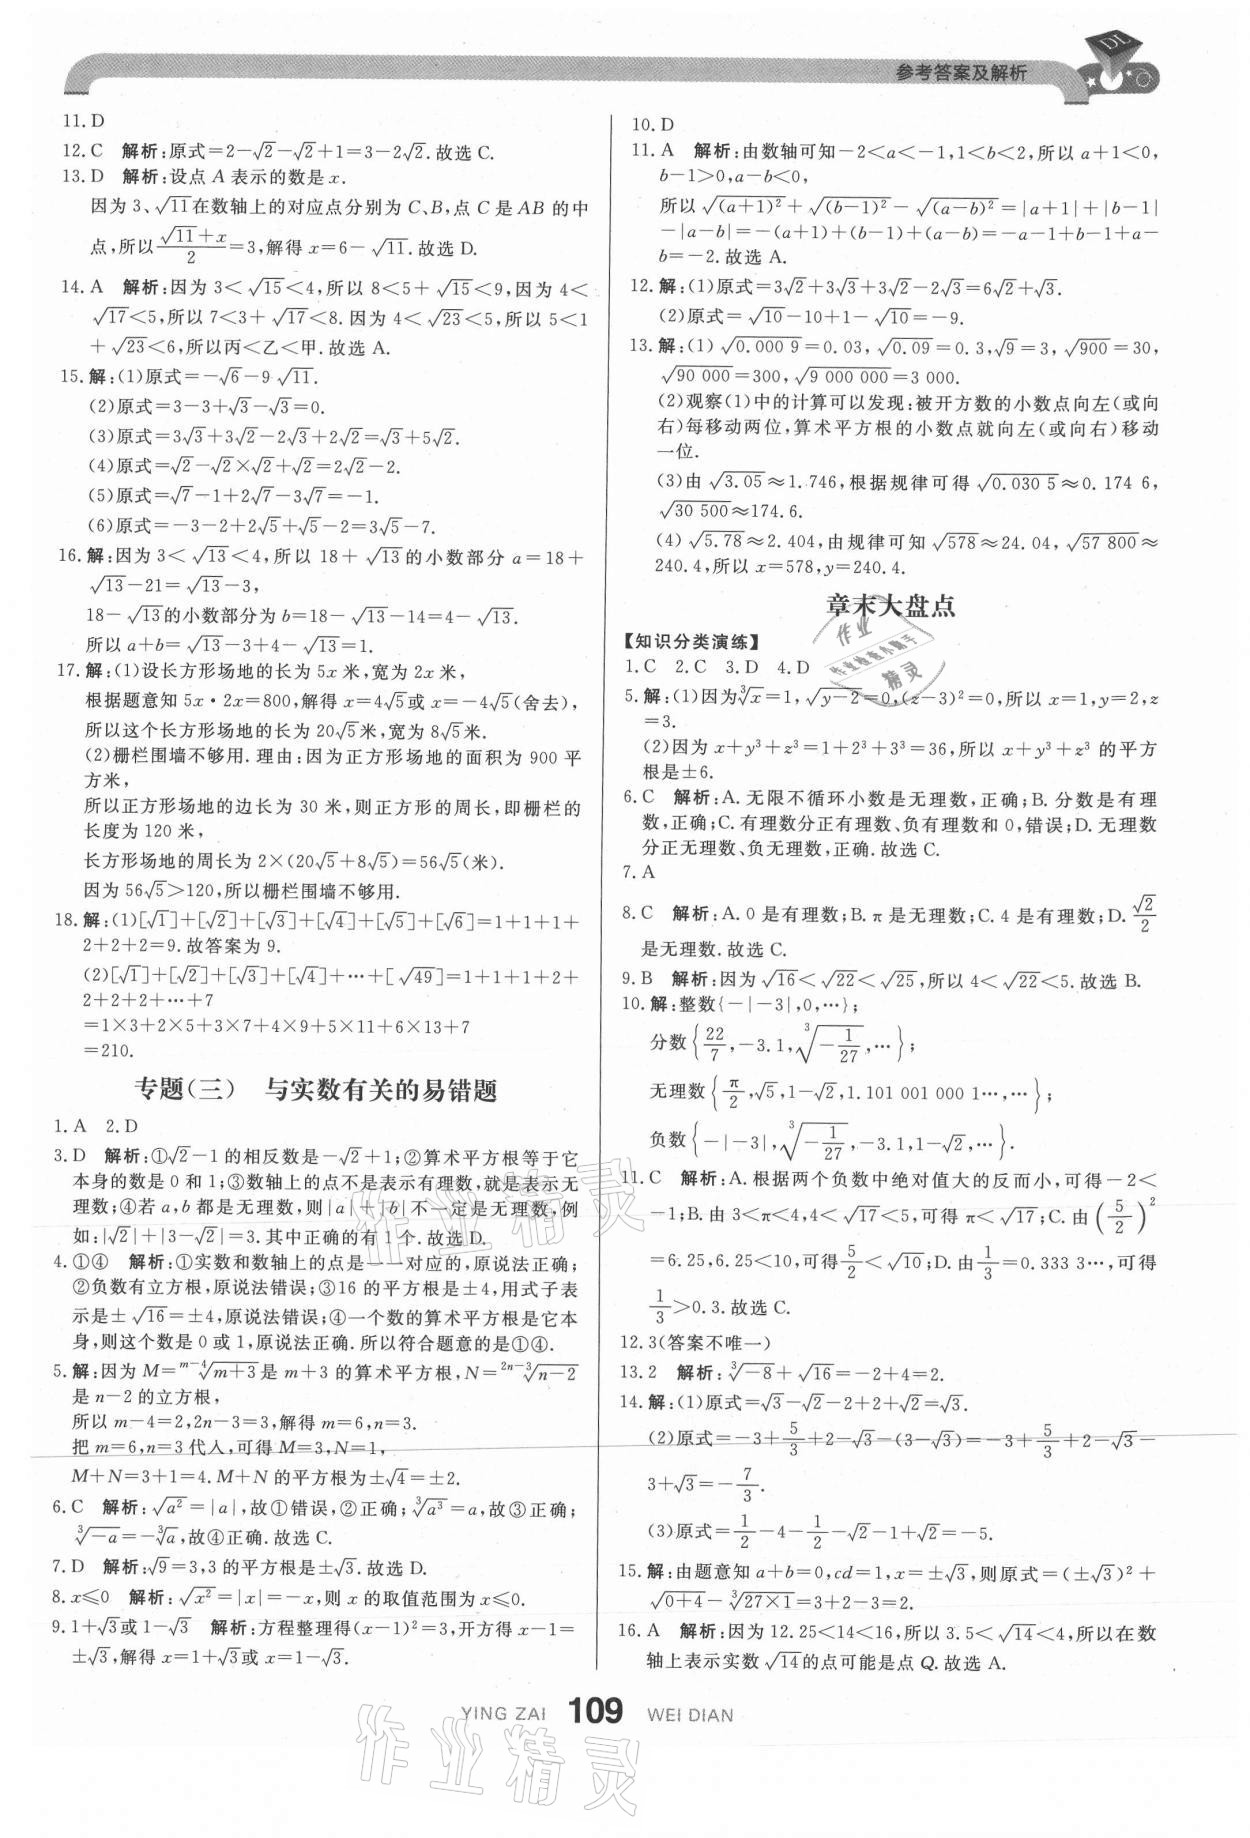 参考答案及解析
DL
11. D
12. C 解析:原式=2-√2-√2+1=3-2√2.故选 C.
13. D 解析:设点 A 表示的数是 x.
因为 3、√11在数轴上的对应点分别为 C、B,点 C 是 AB 的中
点,所以(√11+x)/2=3,解得 x=6-√11.故选 D.
14. A 解析:因为 3<√15<4,所以 8<5+√15<9,因为 4<
√17<5,所以 7<3+√17<8.因为 4<√23<5,所以 5<1
+√23<6,所以丙<乙<甲.故选 A.
15. 解:(1)原式=-√6-9√11.
(2)原式=3-3+√3-√3=0.
(3)原式=3√3+3√2-2√3+2√2=√3+5√2.
(4)原式=√2-√2×√2+√2=2√2-2.
(5)原式=√7-1+2√7-3√7=-1.
(6)原式=-3-2+2√5+√5-2=3√5-7.
16. 解:因为 3<√13<4,所以 18+√13的小数部分 a=18+
√13-21=√13-3,
18-√13的小数部分为 b=18-√13-14=4-√13.
所以 a+b=√13-3+4-√13=1.
17. 解:(1)设长方形场地的长为 5x 米,宽为 2x 米,
根据题意知 5x·2x=800,解得 x=4√5或 x=-4√5(舍去),
所以这个长方形场地的长为 20√5米,宽为 8√5米.
(2)栅栏围墙不够用.理由:因为正方形场地的面积为 900 平
方米,
所以正方形场地的边长为 30 米,则正方形的周长,即栅栏的
长度为 120 米,
长方形场地的周长为 2×(20√5+8√5)=56√5(米).
因为 56√5>120,所以栅栏围墙不够用.
18. 解:(1)[√1]+[√2]+[√3]+[√4]+[√5]+[√6]=1+1+1+
2+2+2=9.故答案为 9.
(2)[√1]+[√2]+[√3]+[√4]+…+[√49]=1+1+1+2+
2+2+2+…+7
=1×3+2×5+3×7+4×9+5×11+6×13+7
=210.
专题(三) 与实数有关的易错题
1. A 2. D
3. D 解析:①√2-1 的相反数是-√2+1;②算术平方根等于它
本身的数是 0 和 1;③数轴上的点不是表示有理数,就是表示无
理数;④若 a,b 都是无理数,则|a|+|b|不一定是无理数,例
如:|√2|+|3-√2|=3.其中正确的有 1 个.故选 D.
4. ①④ 解析:①实数和数轴上的点是一一对应的,原说法正确;
②负数有立方根,原说法错误;③16 的平方根是±4,用式子表
示是±√16=±4,原说法错误;④一个数的算术平方根是它本
身,则这个数是 0 或 1,原说法正确.所以符合题意的是①④.
5. 解:因为 M=ᵐ⁻⁴√(m+3)是 m+3 的算术平方根,N=²ⁿ⁻³√(n-2)
是 n-2 的立方根,
所以 m-4=2,2n-3=3,解得 m=6,n=3.
把 m=6,n=3 代人,可得 M=3,N=1,
M+N=3+1=4.M+N 的平方根为±√4=±2.
6. C 解析:√(a²)=|a|,故①错误,②正确;³√(a³)=a,故③正确;
³√(-a)=-³√a,故④正确.故选 C.
7. D 解析:√9=3,3 的平方根是±√3.故选 D.
8. x≤0 解析:√(x²)=|x|=-x,则 x 的取值范围为 x≤0.
9. 1+√3或 1-√3 解析:方程整理得(x-1)²=3,开方得 x-1=
±√3,解得 x=1+√3或 x=1-√3.
10. D
11. A 解析:由数轴可知-2<a<-1,1<b<2,所以 a+1<0,
b-1>0,a-b<0,
所以 √((a+1)²)+√((b-1)²)-√((a-b)²)=|a+1|+|b-1|
-|a-b|=-(a+1)+(b-1)+(a-b)=-a-1+b-1+a-
b=-2.故选 A.
12. 解:(1)原式=3√2+3√3+3√2-2√3=6√2+√3.
(2)原式=√10-10+1-√10=-9.
13. 解:(1) √0.000 9=0.03,√0.09=0.3,√9=3,√900=30,
√90 000=300,√9 000 000=3 000.
(2)观察(1)中的计算可以发现:被开方数的小数点向左(或向
右)每移动两位,算术平方根的小数点就向左(或向右)移动
一位.
(3)由 √3.05≈1.746,根据规律可得 √0.030 5≈0.174 6,
√30 500≈174.6.
(4) √5.78≈2.404,由规律可知√578≈24.04,√57 800≈
240.4,所以 x=578,y=240.4.
章末大盘点
【知识分类演练】
1. C 2. C 3. D 4. D
5. 解:(1)因为³√x=1,√(y-2)=0,(z-3)²=0,所以 x=1,y=2,z
=3.
(2)因为 x+y³+z³=1+2³+3³=36,所以 x+y³+z³ 的平方
根是±6.
6. C 解析:A.无限不循环小数是无理数,正确;B.分数是有理
数,正确;C.有理数分正有理数、负有理数和 0,错误;D.无理数
分正无理数、负无理数,正确.故选 C.
7. A
8. C 解析:A.0 是有理数;B.π 是无理数;C.4 是有理数;D.√2/2
是无理数.故选 C.
9. B 解析:因为√16<√22<√25,所以 4<√22<5.故选 B.
10. 解:整数{-|-3|,0,…};
分数{22/7,-3.1,³√(-1/27),…};
无理数{π/2,√5,1-√2,1.101 001 000 1…,…};
负数{-|-3|,³√(-1/27),-3.1,1-√2,…}.
11. C 解析:A.根据两个负数中绝对值大的反而小,可得-2<
-1;B.由 3<π<4,4<√17<5,可得 π<√17;C.由(5/2)²
=6.25,6.25<10,可得5/2<√10;D.由1/3=0.333 3…,可得
1/3>0.3.故选 C.
12. 3(答案不唯一)
13. 2 解析:³√-8+√16=-2+4=2.
14. 解:(1)原式=√3-√2-2+2+√2=√3.
(2)原式=-3+5/3+2-√3-(3-√3)=-3+5/3+2-√3-
3+√3=-7/3.
(3)原式=1/2-4-1/2-√2-1+√2=-5.
15. 解:由题意知 a+b=0,cd=1,x=±√3,则原式=(±√3)²+
√(0+4)-³√(27×1)=3+2-3=2.
16. A 解析:因为 12.25<14<16,所以 3.5<√14<4,所以在数
轴上表示实数√14的点可能是点 Q.故选 A.
作业
作业检查小助手
精灵
作业精灵
YING ZAI 109 WEI DIAN
作业精灵